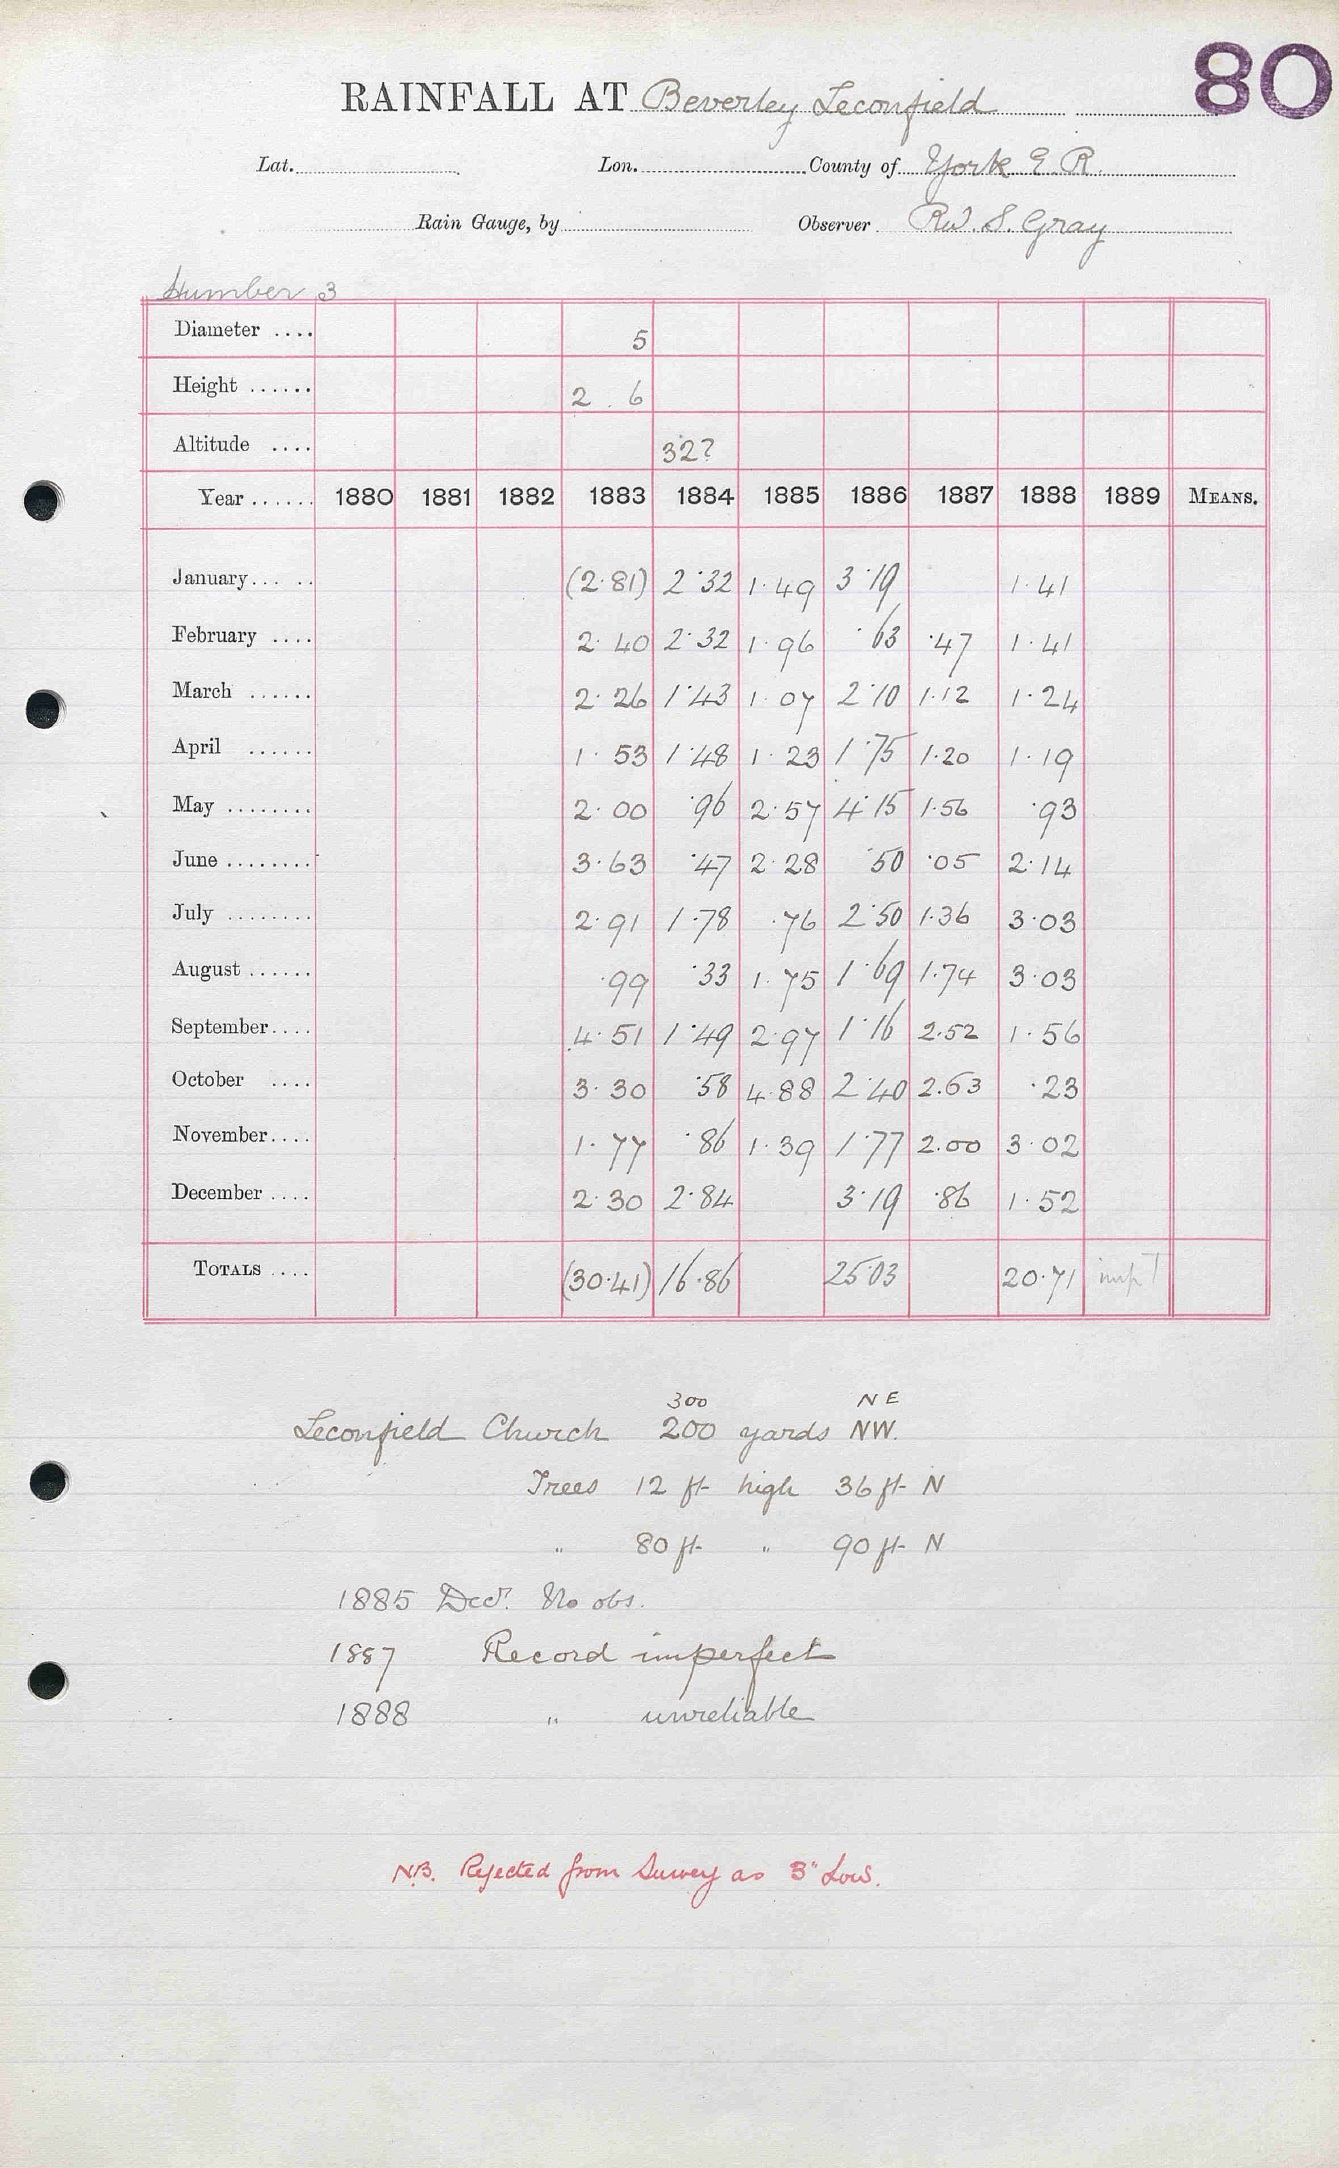 80
RAINFALL AT Beverley Leconfield
Lat. Lon. County of York E. R.
Rain Gauge, by Observer Rev. S. Gray
Humber 3
Diameter .... 5
Height ...... 2 . 6
Altitude .... 32?
Year ...... 1880 1881 1882 1883 1884 1885 1886 1887 1888 1889 MEANS.
January... .. (2.81) 2.32 1.49 3.19 1.41
February .... 2.40 2.32 1.96 .63 .47 1.41
March ...... 2.26 1.43 1.07 2.10 1.12 1.24
April ...... 1.53 1.48 1.23 1.75 1.20 1.19
May ........ 2.00 .96 2.57 4.15 1.56 .93
June ........ 3.63 .47 2.28 .50 .05 2.14
July ........ 2.91 1.78 .76 2.50 1.36 3.03
August ...... .99 .33 1.75 1.69 1.74 3.03
September.... 4.51 1.49 2.97 1.16 2.52 1.56
October .... 3.30 .58 4.88 2.40 2.63 .23
November.... 1.77 .86 1.39 1.77 2.00 3.02
December .... 2.30 2.84 3.19 .86 1.52
TOTALS .... (30.41) 16.86 25.03 20.71 impt
300 NE
Leconfield Church 200 yards NW.
Trees 12 ft high 36 ft N
" 80 ft " 90 ft N
1885 Decr. No obs.
1887 Record imperfect
1888 " unreliable
N.B. Rejected from Survey as 3" Low.